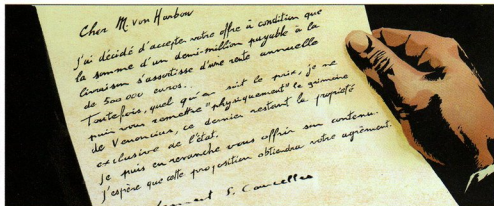 Cher M. von Harbow
J'ai décidé d'accepter votre offre à condition que
la somme d'un demi-million payable à la
livraison s'assortisse d'une rente annuelle
de 500 000 euros..
Toutefois, quel qu'en soit le prix, je ne
puis vous remettre "physiquement" le grimoire
de Venoncius, ce dernier restant la propriété
exclusive de l'état.
Je puis en revanche vous offrir son contenu.
J'espère que cette proposition obtiendra votre agrément.